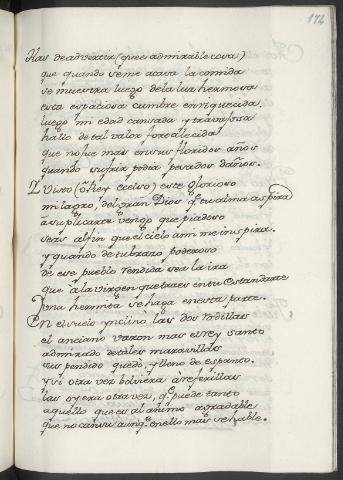 174
Has de advertir (que es admirable cosa)
que quando seme acava la comida
se muestra luego dela luz hermosa
esta espatiosa cumbre enrriquecida.
luego mi edad cansada y travajosa
hallo detal valor fortalecida
que no fue mas en sus floridos años
quando sufrir podia pesados daños.
Visto (o Rey excelso) este glorioso
milagro, del gran Dios q tu alma aspira
à suplicaros vengo que piadoso
seas al fin que el cielo ami me inspira.
y quando de tu brazo poderoso
de ese pueblo rendida sea la ira
que à la virgen que traes en tu estandarte
Una hermita se haga en esta parte.
En el suelo ynclinò las dos rodillas
el anciano varon mas el rey santo
admirado de tales maravillas
suspendido quedò, y lleno de espanto.
y si otra vez bolviera à referillas
las oyera otra vez, q puede tanto
aquello que es al animo agradable
que no cansa aunq en ello mas se hable.